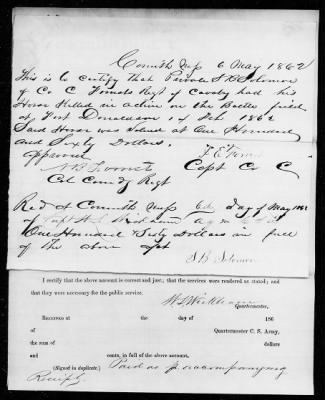 Corinth Miss 6 May 1862
This is to certify that Private S B Solomon
of Co C Forrests Regt of Cavalry had his
Horse Killed in action on the Battle field
of Fort Donaldson, of Feb 1862
Said Horse was valued at One Hundred
and Sixty Dollars.
approved
Capt Co C
N B Forrest
Col Comdg Regt
Recd at Corinth Miss 6th day of May 1862
of Capt
One Hundred & Sixty Dollars in full
of the above apt
S B Solomon
I certify that the above account is correct and just; that the services were rendered as stated; and
that they were necessary for the public service.
Quartermaster.
Received at the day of 186
of Quartermaster C. S. Army,
the sum of dollars
and cents, in full of the above account.
(Signed in duplicate.) Paid as pr accompanying
Receipt